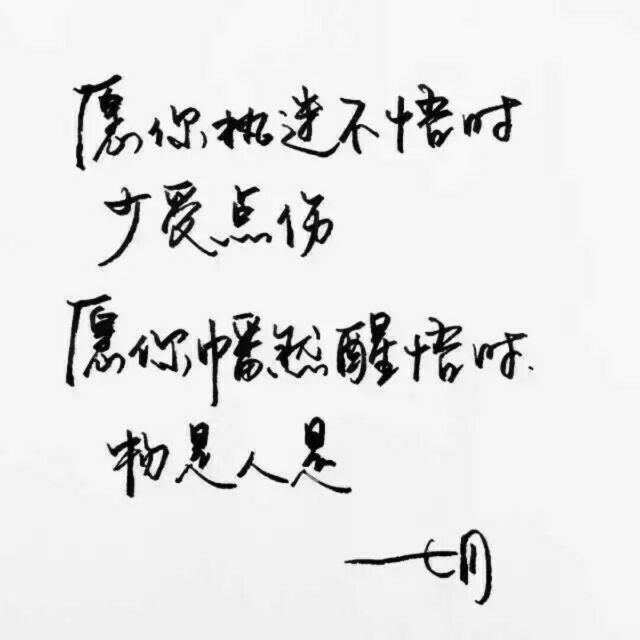 愿你执迷不悟时
少受点伤
愿你幡然醒悟时.
物是人是
——七月